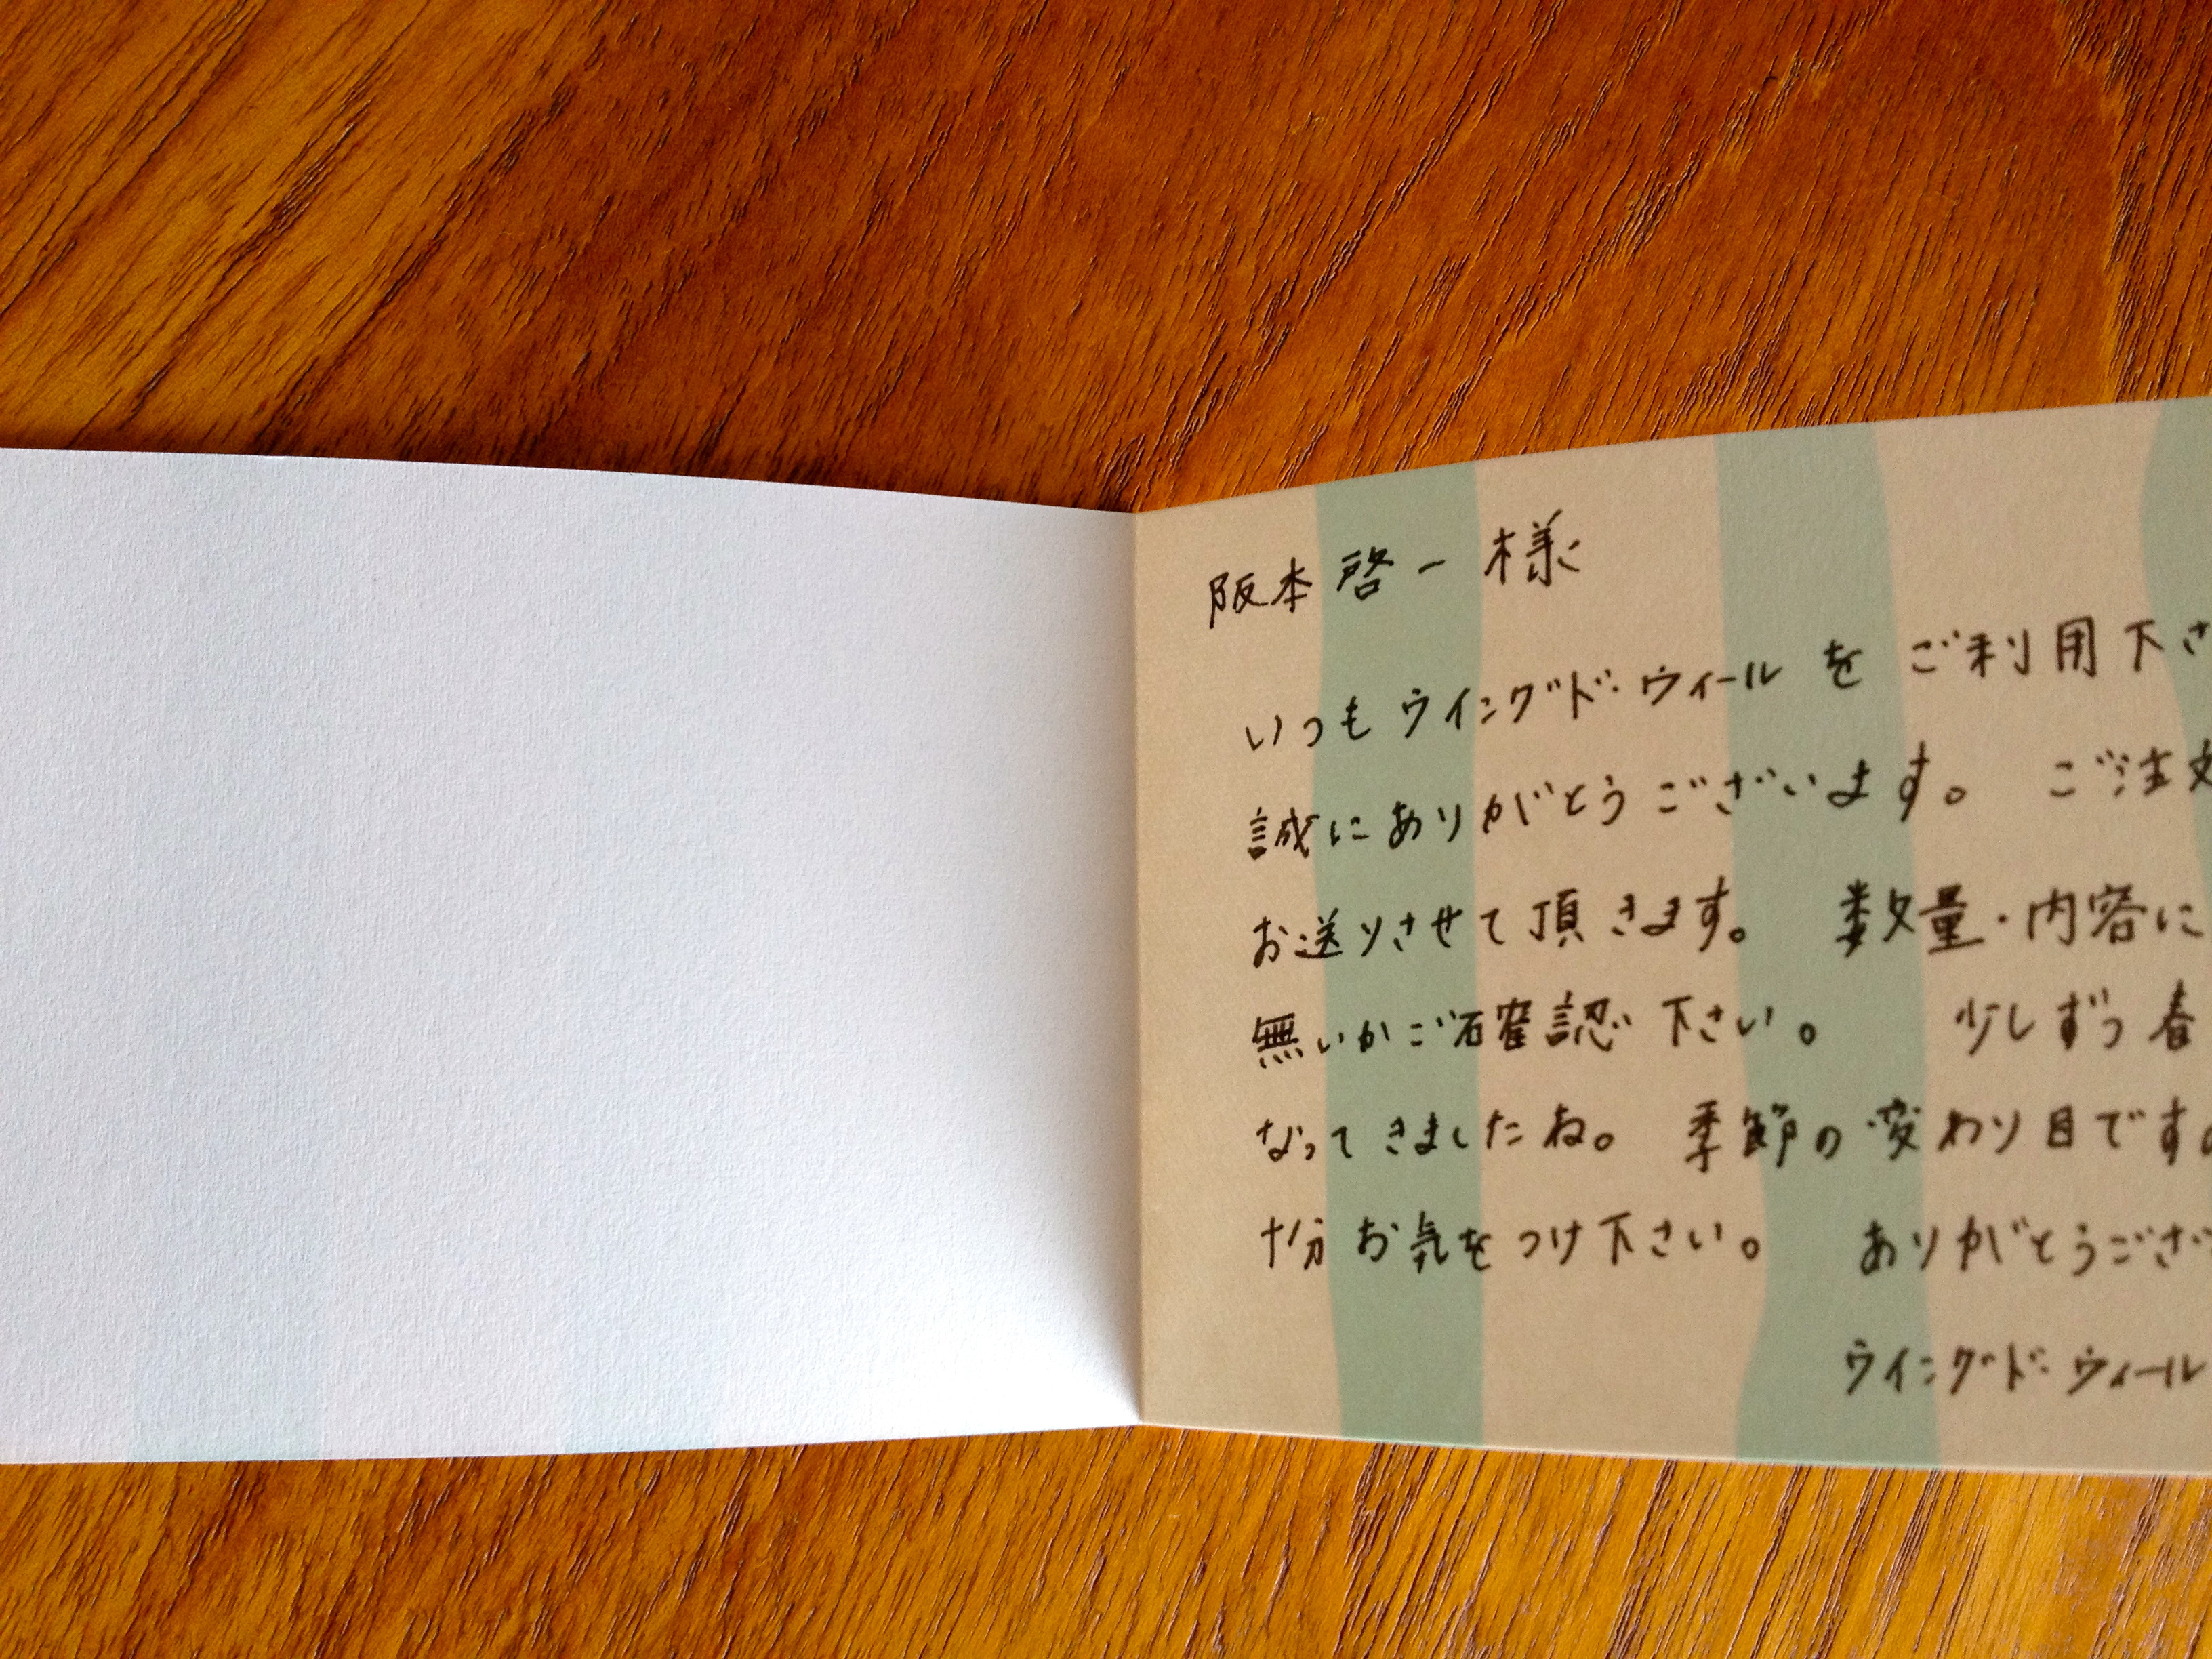 阪本 啓一 様
いつも ウイングド・ウィール を ご利用下さ
誠にありがとうございます。 ご注文
お送りさせて頂きます。 数量・内容に
無いかご確認下さい。 少しずつ春
なってきましたね。 季節の変わり目です。
十分お気をつけ下さい。 ありがとうござ
ウイングド・ウィール